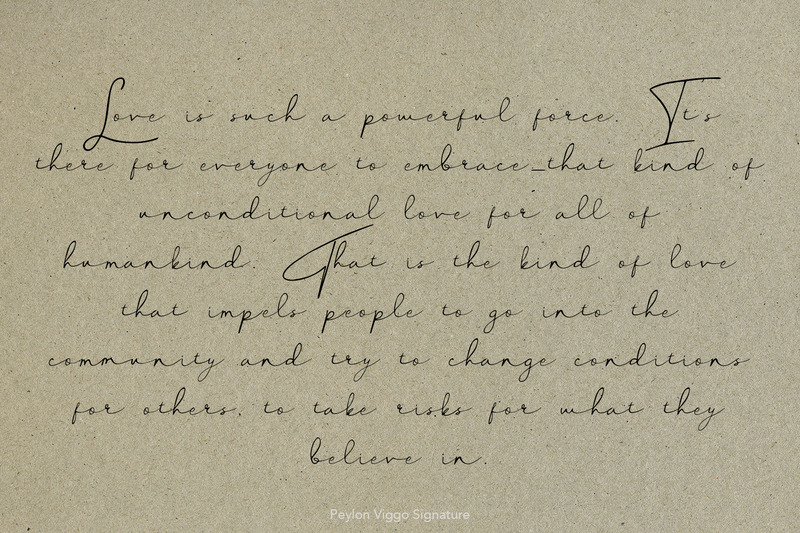 Love is such a powerful force. It's
there for everyone to embrace_that kind of
unconditional love for all of
humankind. That is the kind of love
that impels people to go into the
community and try to change conditions
for others, to take risks for what they
believe in.
Peylon Viggo Signature